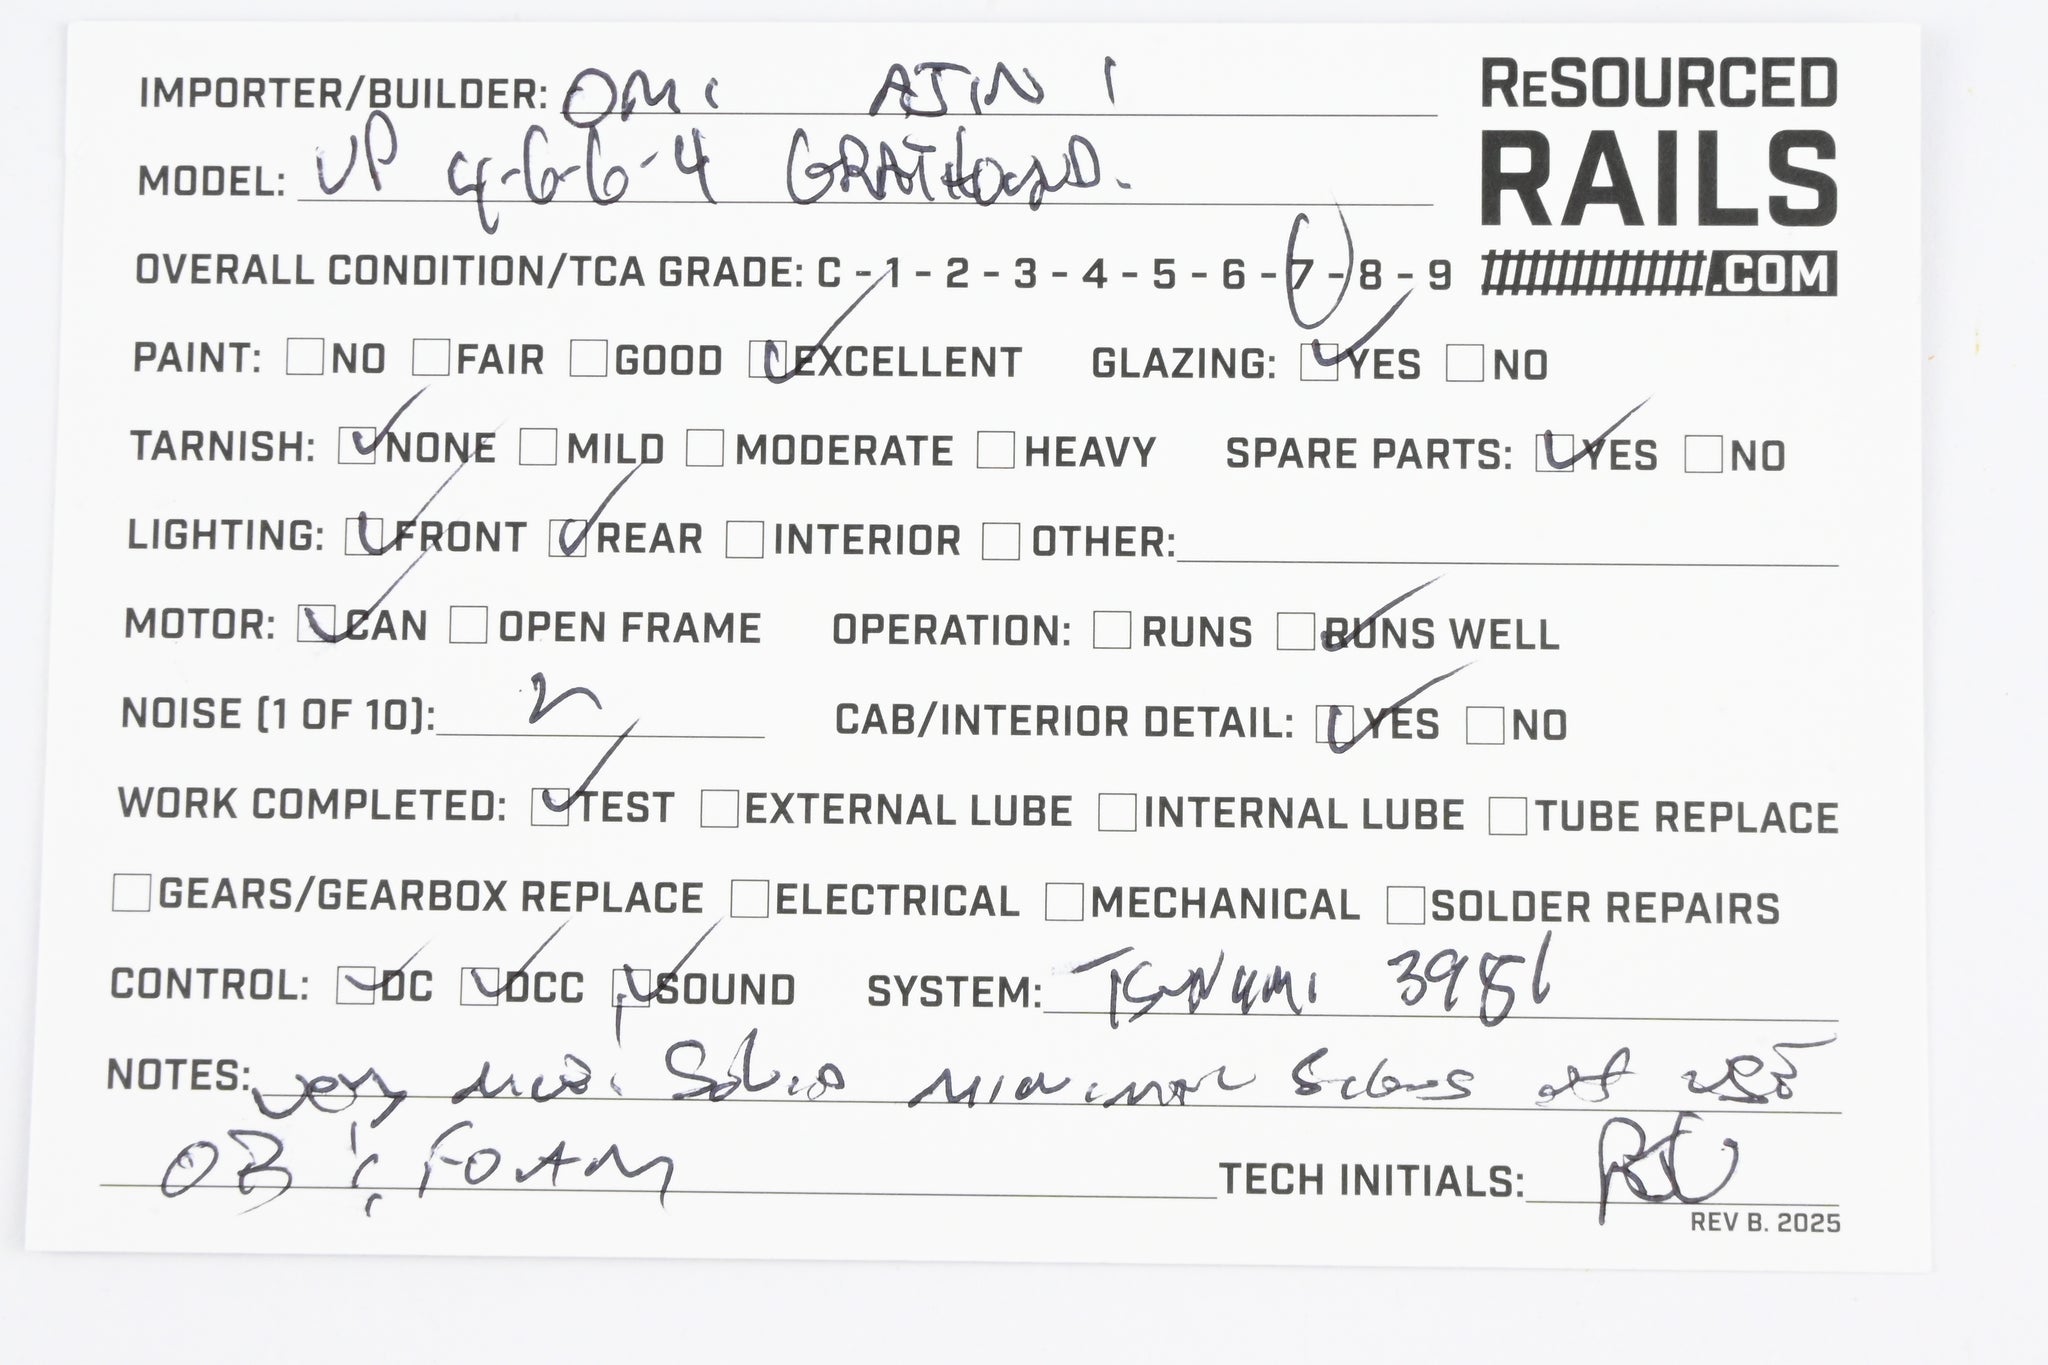 IMPORTER/BUILDER: OMI AJIN
RESOURCED
RAILS
.COM
MODEL: UP 4-6-6-4 GRAYHOUND.
OVERALL CONDITION/TCA GRADE: C - 1 - 2 - 3 - 4 - 5 - 6 - 7 - 8 - 9
PAINT: NO FAIR GOOD EXCELLENT GLAZING: YES NO
TARNISH: NONE MILD MODERATE HEAVY SPARE PARTS: YES NO
LIGHTING: FRONT REAR INTERIOR OTHER:
MOTOR: CAN OPEN FRAME OPERATION: RUNS RUNS WELL
NOISE (1 OF 10): 2 CAB/INTERIOR DETAIL: YES NO
WORK COMPLETED: TEST EXTERNAL LUBE INTERNAL LUBE TUBE REPLACE
GEARS/GEARBOX REPLACE ELECTRICAL MECHANICAL SOLDER REPAIRS
CONTROL: DC DCC SOUND SYSTEM: TSUNAMI 3986
NOTES: very nice! Solid MINIMAL Signs of use
OB & FOAM TECH INITIALS:
REV B. 2025